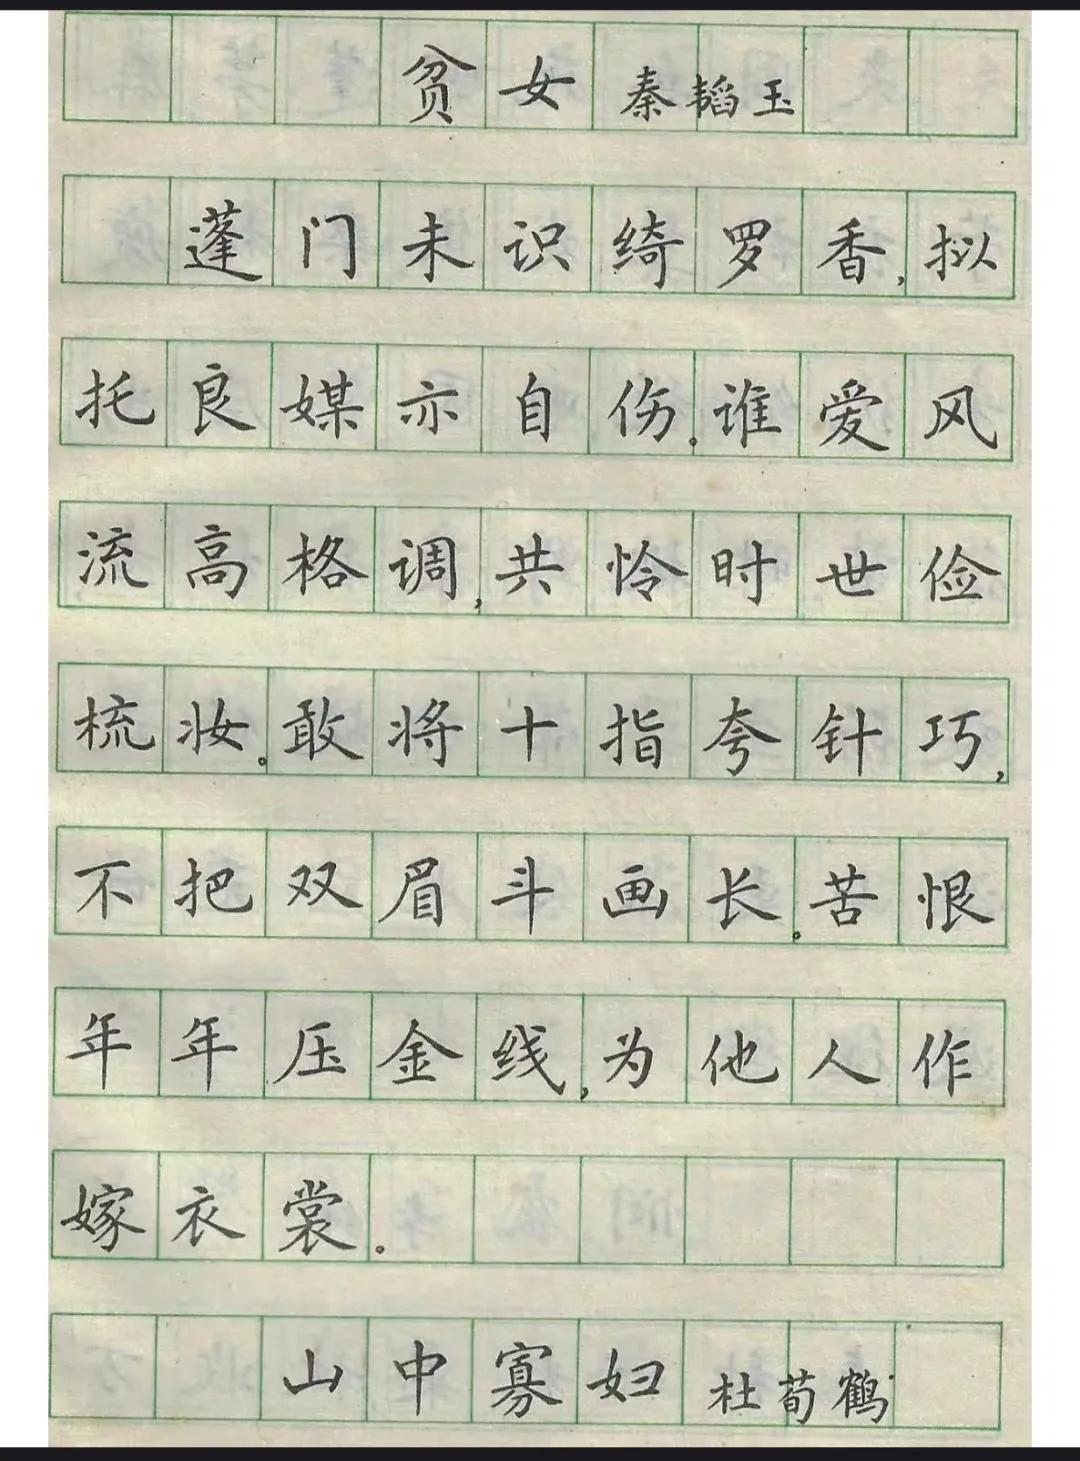 贫女 秦韬玉
蓬门未识绮罗香,拟
托良媒亦自伤。谁爱风
流高格调,共怜时世俭
梳妆。敢将十指夸针巧,
不把双眉斗画长。苦恨
年年压金线,为他人作
嫁衣裳。
山中寡妇 杜荀鹤